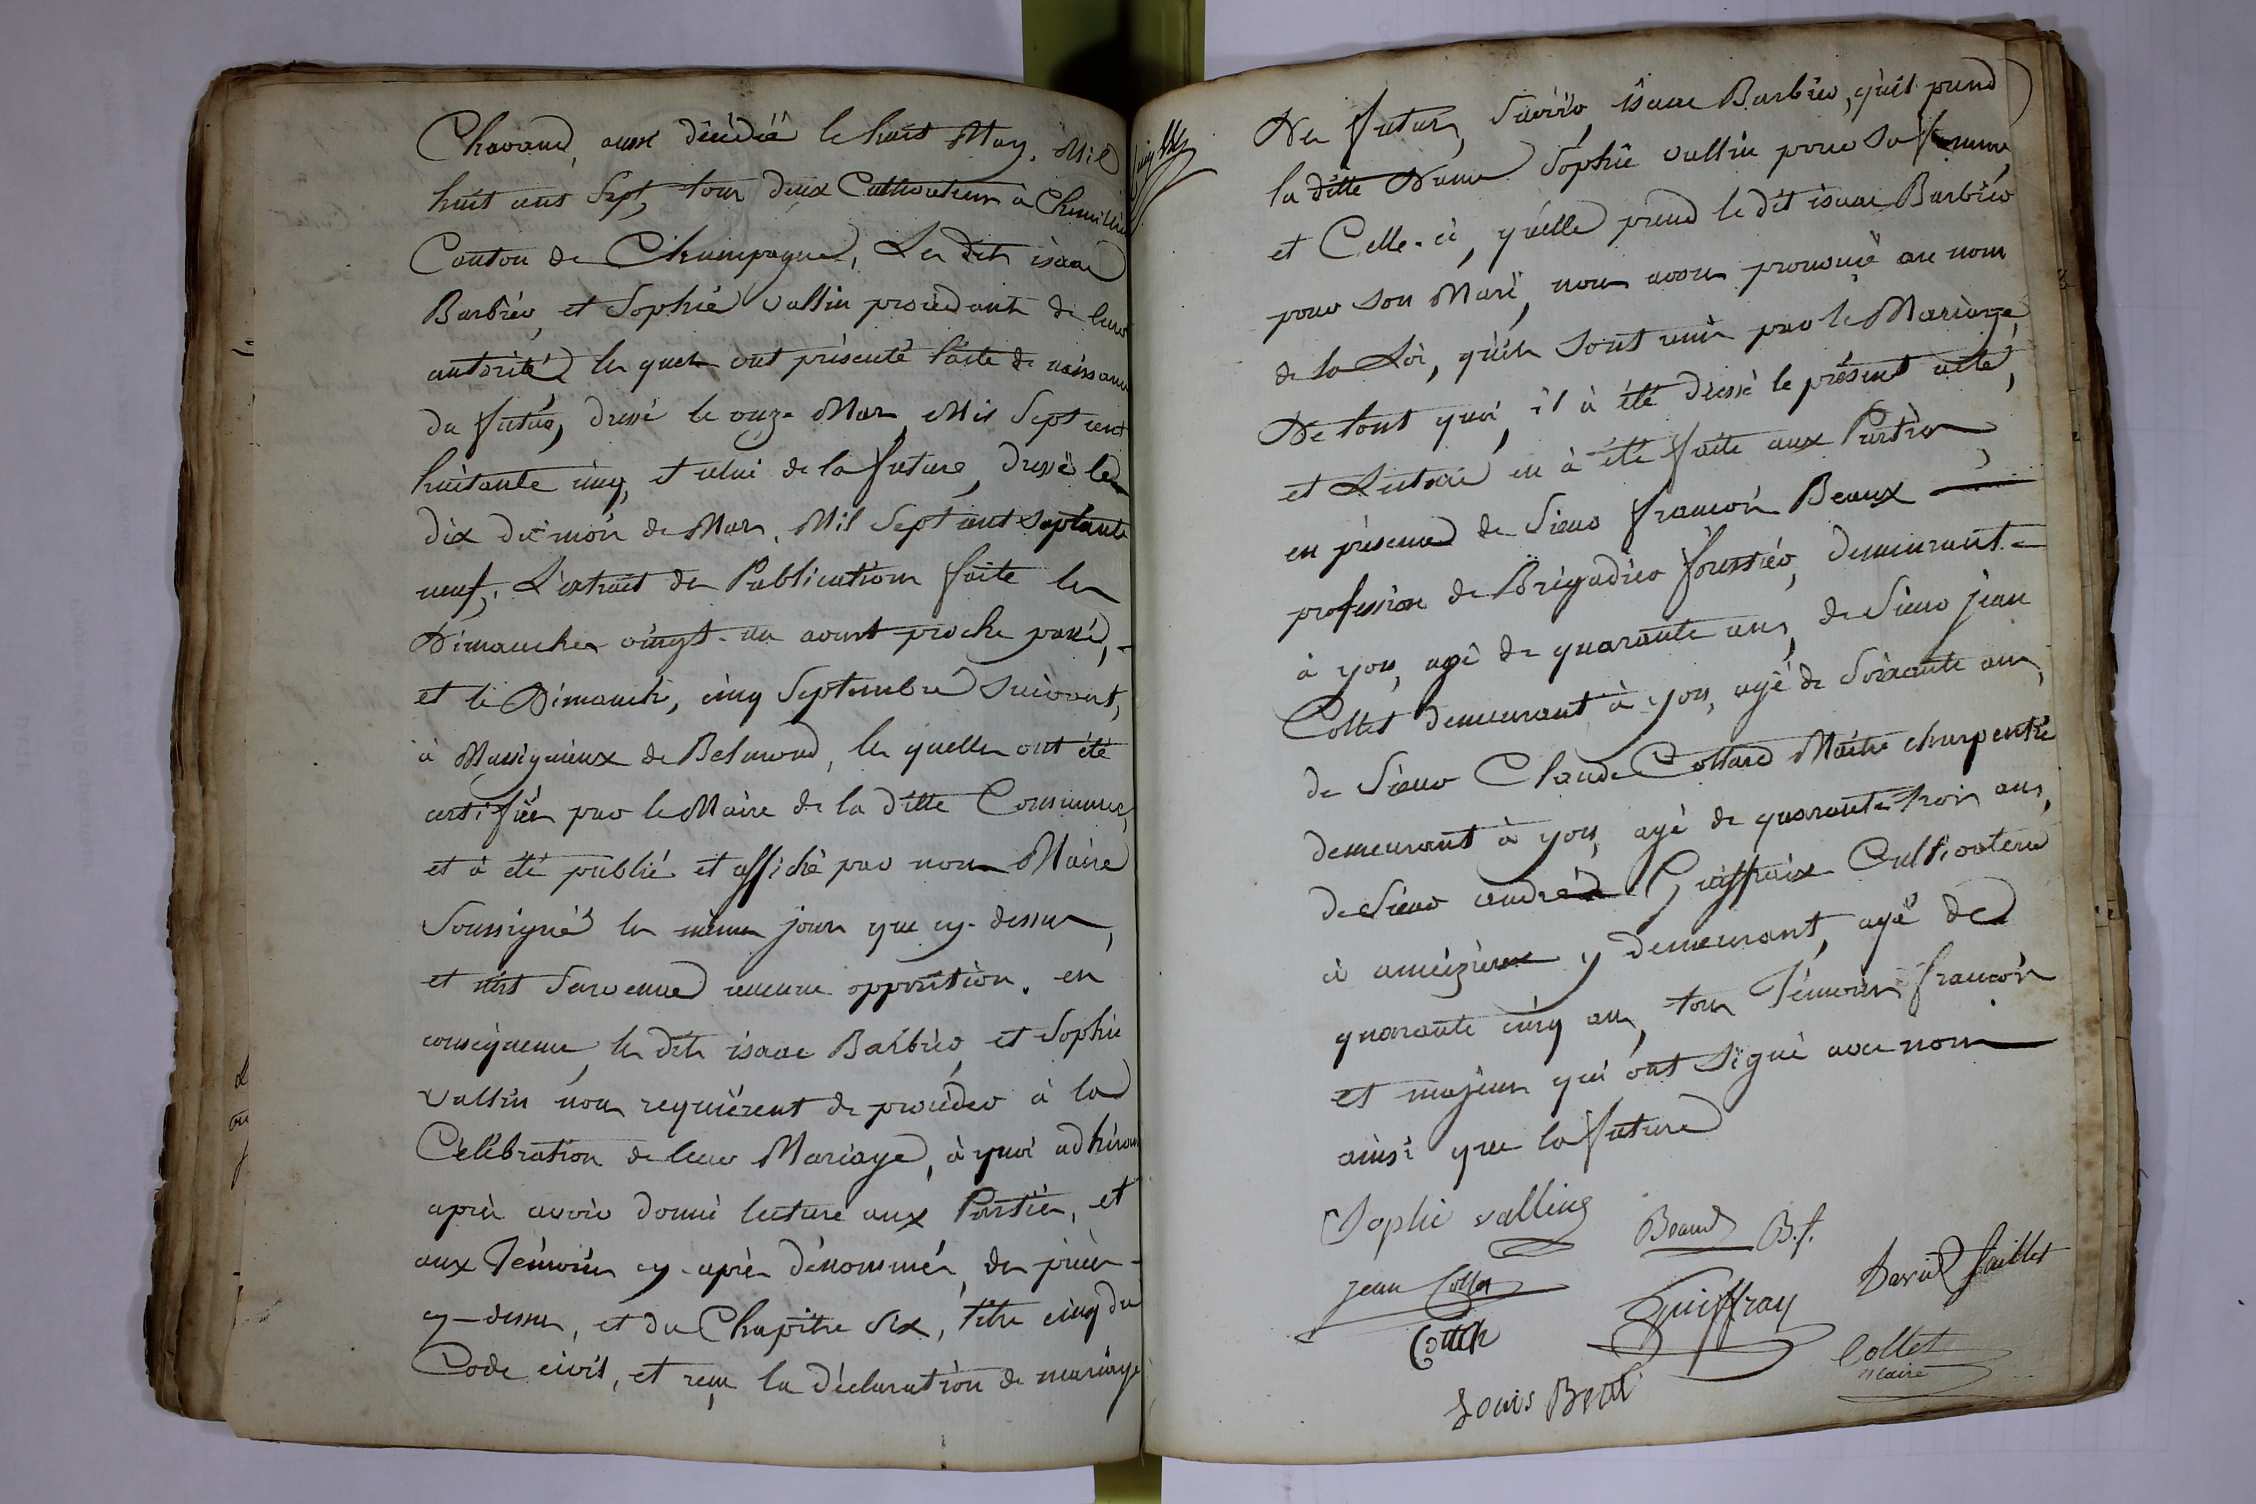 Chavand, aussi décédée le huit May, Mil
huit cent Sept, tous deux Cultivateurs à
Canton de Champagne, Les dits isaac
Barbier, et Sophie vallin procédant de leur
autorité, les quels ont présenté l'acte de naissance
du futur, dressé le onze Mars Mil Sept cent
huitante cinq, et celui de la future, dressé le
dix du mois de Mars, Mil Sept cent septante
neuf, L'extrait des Publications faite les
Dimanches vingt-un aout proche passé,
et le Dimanche, cinq Septembre suivant,
à Massignieux de Belmond, les quelles ont été
certifiées par le Maire de la ditte Commune,
et à été publié et affiché par nous Maire
Soussigné les mêmes jours que cy-dessus,
et n'est Survenue aucune opposition. en
conséquence, les dits isaac Barbier, et Sophie
vallin nous requièrent de procéder à la
Célébration de leur Mariage, à quoi adhérant
après avoir donné lecture aux Parties, et
aux Témoins cy-après dénommés, des pièces
cy-dessus, et du Chapitre six, titre cinq du
Code civil, et reçu la déclaration de mariage
Des futurs, Savoir, isaac Barbier, qu'il prend
la ditte Sophie vallin pour Sa femme,
et Celle-ci, qu'elle prend le dit isaac Barbier
pour son Mari, nous avons prononcé au nom
de la Loi, qu'ils sont unis par le Mariage,
De tout quoi, il à été dressé le présent acte,
et Lecture en à été faite aux Parties,
en présence de Sieur françois Beaux
profession de Brigadier foressier, demeurant
à yon, agé de quarante ans, de Sieur jean
Collet demeurant à yon, agé de Soixante ans,
de Sieur Claude Collard Maitre charpentié
demeurant à yon, agé de quarante trois ans,
de Sieur andré Guiffraix Cultivateur
à ameizieux y demeurant, agé de
quarante cinq ans, tous Témoins françois
et majeurs qui ont Signé avec nous
ainsi que la future
Sophie valling
Beaud B.f.
jean Collet
David jaillet
guiffray
Collet
maire
Louis